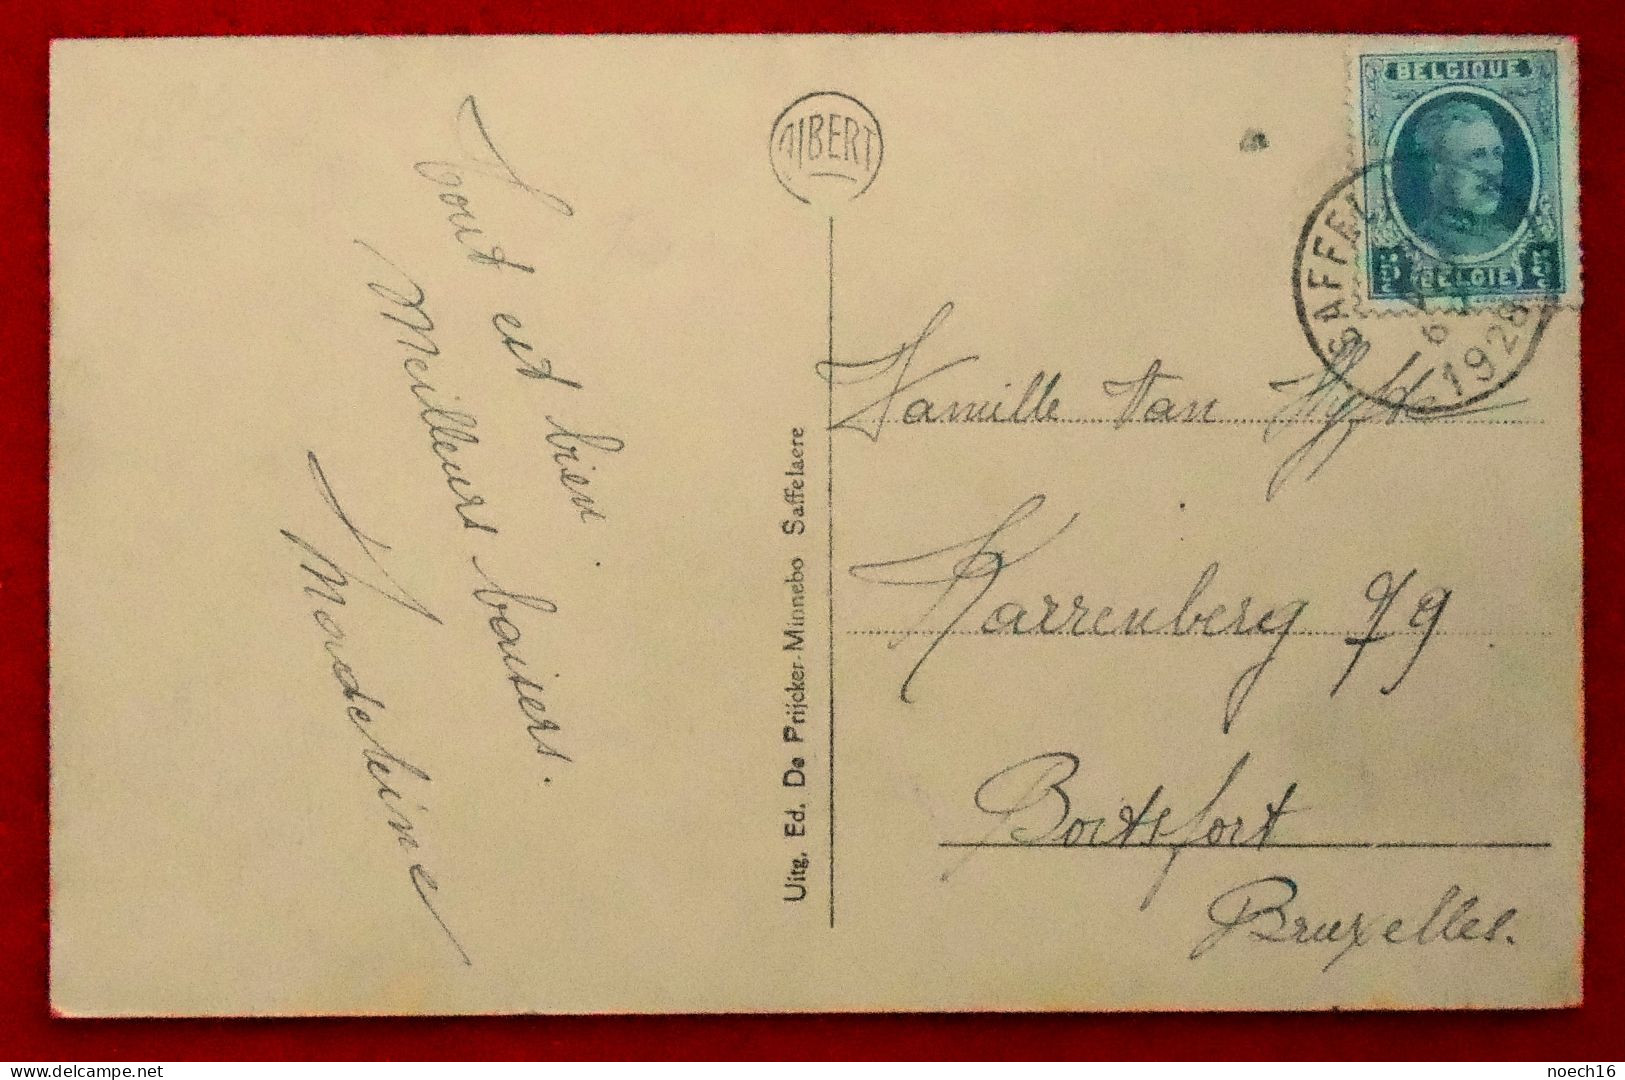 Tout est bien
Meilleurs baisers.
Madeleine
ALBERT
Uitg. Ed. De Prijcker-Minnebo Saffelaere
BELGIQUE
5 BELGIË 5
SAFFEL
6
1928
Famille Van
Karrenberg 79
Boitsfort
Bruxelles.
delcampe.net
noech16